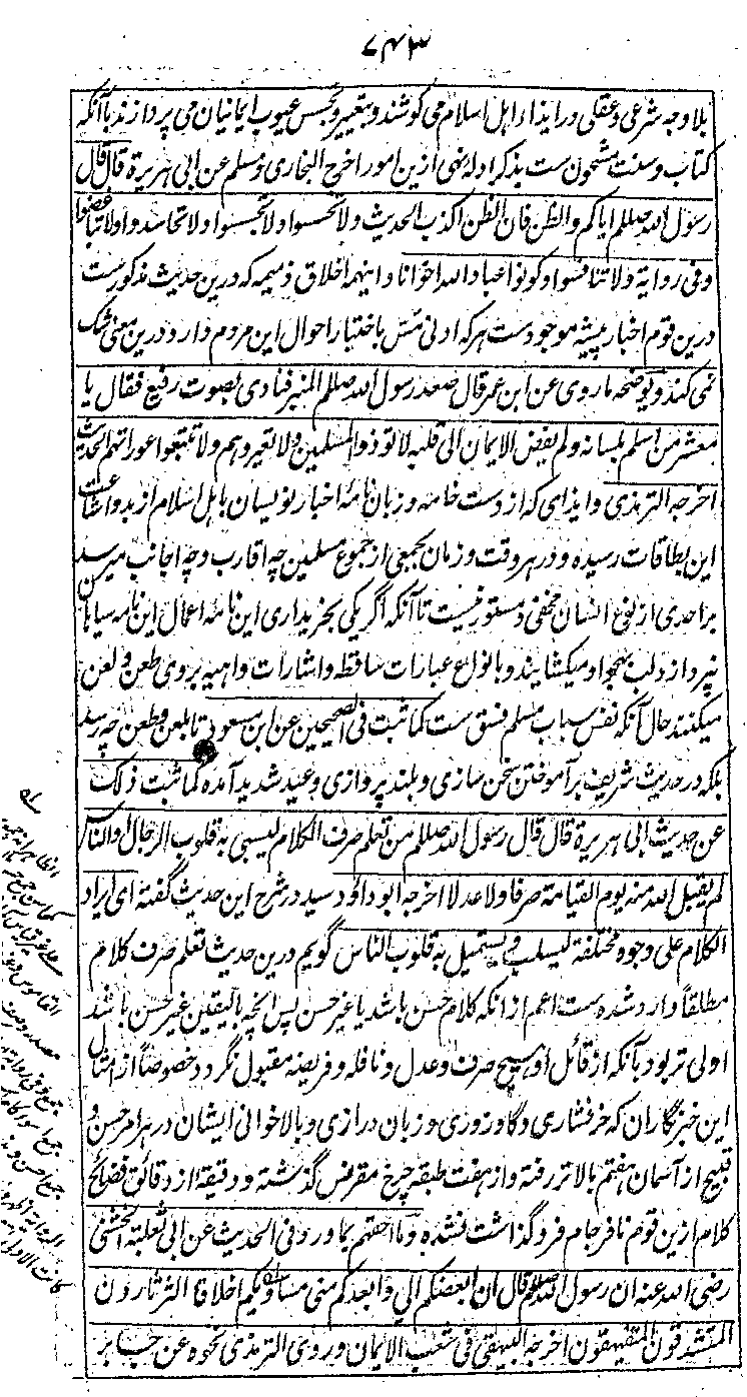 ۷۴۳
بلا وجه شرعی و عقلی در ایذاء اہل اسلام می کوشند و بتعییر و تجسس عیوب ایمانیان می پردازند با آنکه
کتاب و سنت مشحون ست بذکر ادلۂ نہی ازین امور اخرج البخاری و مسلم عن ابی ہریرة قال قال
رسول الله صللم ایاکم والظن فان الظن اکذب الحدیث ولا تحسسوا ولا تجسسوا ولا تحاسدوا ولا تباغضوا
وفی روایة ولا تنافسوا وکونوا عباد الله اخوانا و اینہمہ اخلاق ذمیمه که درین حدیث مذکورست
درین قوم اخبار پیشہ موجودست ہر که ادنی مس باختبار احوال این مردم دارد درین معنی شک
نمی کند و یوضحه ما روی عن ابن عمر قال صعد رسول الله صللم المنبر فنادی بصوت رفیع فقال یا
معشر من اسلم بلسانه ولم یفض الایمان الی قلبه لا توذوا المسلمین ولا تعیروہم ولا تتبعوا عوراتہم الحدیث
اخرجه الترمذی و ایذای که از دست خامه و زبان نامۂ اخبار نویسان باہل اسلام از بدو اشاعت
این بطاقات رسیده و در ہر وقت و زمان بجمعی از جموع مسلمین چه اقارب و چه اجانب میرسد
بر احدی از نوع انسان مخفی و مستور نیست تا آنکه اگر یکی بخریداری این نامۂ اعمال این نامه سیاہان
نپردازد لب بہجو او میکشایند و بانواع عبارات ساقطه و اشارات واہیه بروی طعن و لعن
میکنند حال آنکه نفس سباب مسلم فسق ست کما ثبت فی الصحیحین عن ابن مسعود تا بلعن و طعن چه رسد
بلکه در حدیث شریف بر آموختن سخن سازی و بلند پردازی وعید شدید آمده کما ثبت ذلک
عن حدیث ابی ہریرة قال قال رسول الله صللم من تعلم صرف الکلام لیسبی به قلوب الرجال او الناس
لم یقبل الله منه یوم القیامة صرفا ولا عدلا اخرجه ابو داؤد سید در شرح این حدیث گفته ای ایراد
الکلام علی وجوه مختلفة لیسلب و یستمیل به قلوب الناس گویم درین حدیث تعلم صرف کلام
مطلقاً وارد شده ست اعم از انکه کلام حسن باشد یا غیر حسن پس انچه بالیقین غیر حسن باشد
اولی تر بود بآنکه از قائل او ہیچ صرف و عدل و نافله و فریضه مقبول نگردد خصوصاً از امثال
این خبر نگاران که خرفشاری و گاوزوری و زبان درازی و بالاخوانی ایشان در ہر امر حسن و
قبیح از آسمان ہفتم بالاتر رفته و از ہفت طبقه چرخ مقرنس گذشته و دقیقه از دقائق فضائح
کلام ازین قوم نافرجام فروگذاشت نشده وما احقہم بما ورد فی الحدیث عن ابی ثعلبة الخشنی
رضی الله عنه ان رسول الله صللم قال ان ابغضکم الی وابعدکم منی مساویکم اخلاقا الثرثارون
المتشدقون المتفیہقون اخرجه البیہقی فی شعب الایمان وروی الترمذی نحوه عن جابر